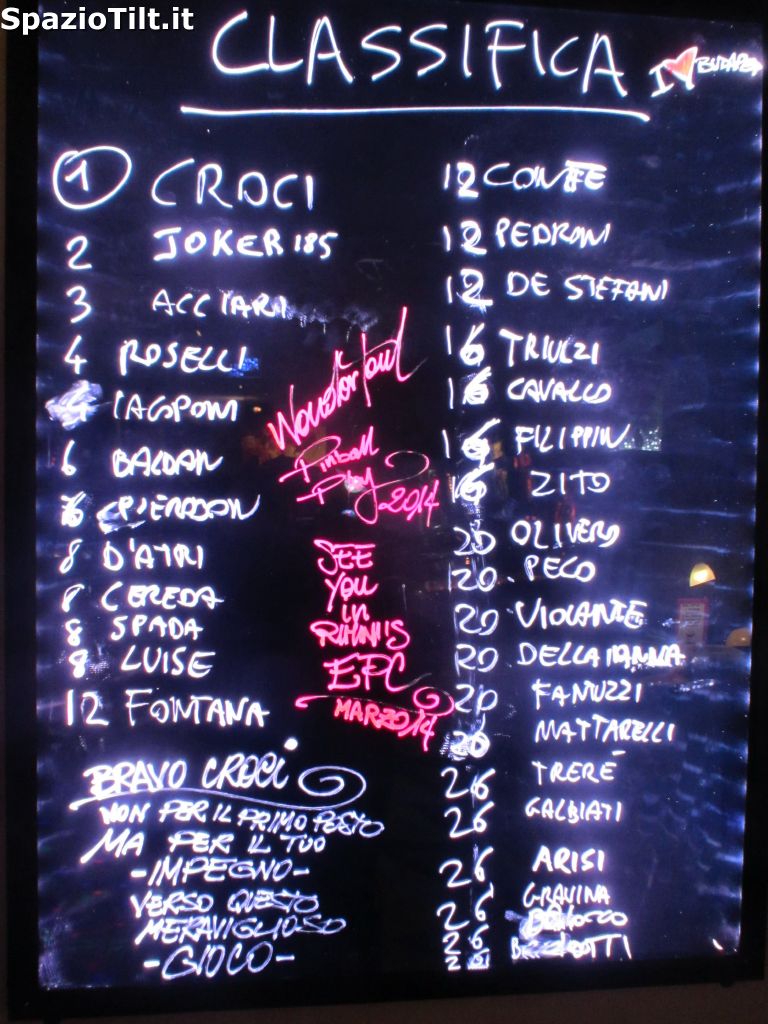 SpazioTilt.it
CLASSIFICA
I ❤ BUDAPEST
1 CROCI
2 JOKER 185
3 ACCIARI
4 ROSELLI
IACOPONI
6 BALDAN
PIERDDAN
8 D'ATRI
8 CEREDA
8 SPADA
8 LUISE
12 FONTANA
BRAVO CROCI
NON PER IL PRIMO POSTO
MA PER IL TUO
-IMPEGNO-
VERSO QUESTO
MERAVIGLIOSO
-GIOCO-
Pinball
Play 2014
SEE
YOU
in
RIMINI'S
EPC
MARZO 14
12 CONTE
12 PEDRONI
12 DE STEFANI
16 TRIULZI
16 CAVALLO
16 FILIPPIN
16 ZITO
20 OLIVERO
20 PECO
20 VIOLANTE
20 DELLA
20 FANUZZI
20 MATTARELLI
26 TRERÉ
26 GALBIATI
26 ARISI
26 GRAVINA
26
26